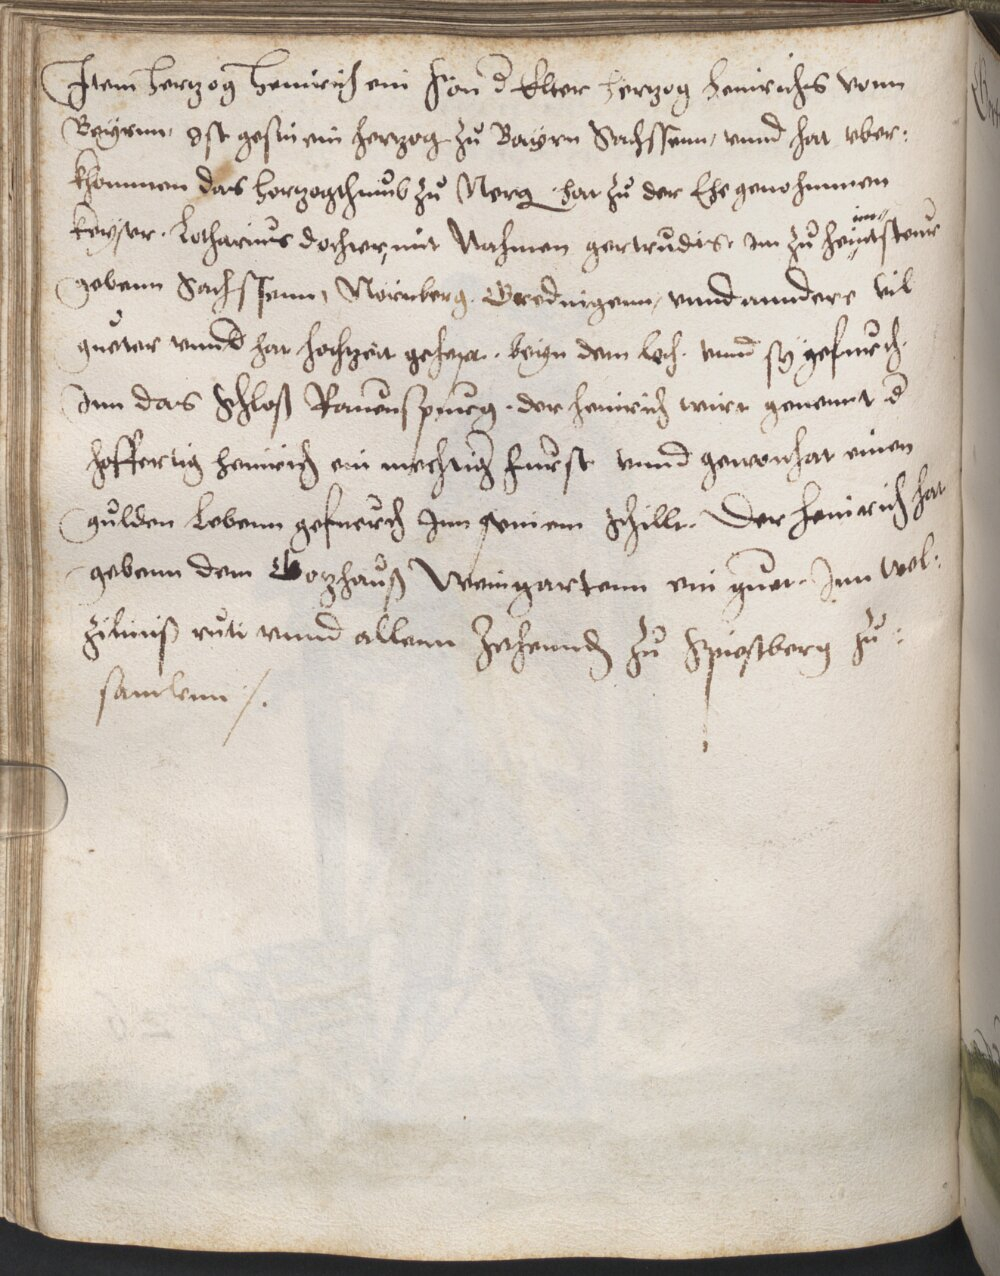 Item hertzog Heinrich ein son d Elter hertzog Heinrichs vonn
Beÿrnn, Ist gesin ein hertzog zů Baÿrn Sachssenn, vnnd hat vber:
khommen das hertzogthumb zů Nerg hat zů der Ehe genohmmen
keÿser Lotharius dochter, mit Nahmen gertrudis. im zů heimsteur
gebenn Sachssenn, Nörnberg. Gredingenn, vnnd anndere vil
gueter vnnd hat hochzeit gehept. beÿn dem lech. vnnd sÿ gefurch.
Inn das schloß Rauenspurg. der heinrich wirt genennt d
hoffertig heinrich ein mechtig furst vnnd gewon hat einen
gulden Lebenn gefuerch Inn seinem schillt. Der heinrich hat
gebenn dem Gotzhauß Weingartenn ein guet. Inn wol:
ziliniß ruti vnnd allenn Zehennd zů Spiestberg zů:
samlenn /.